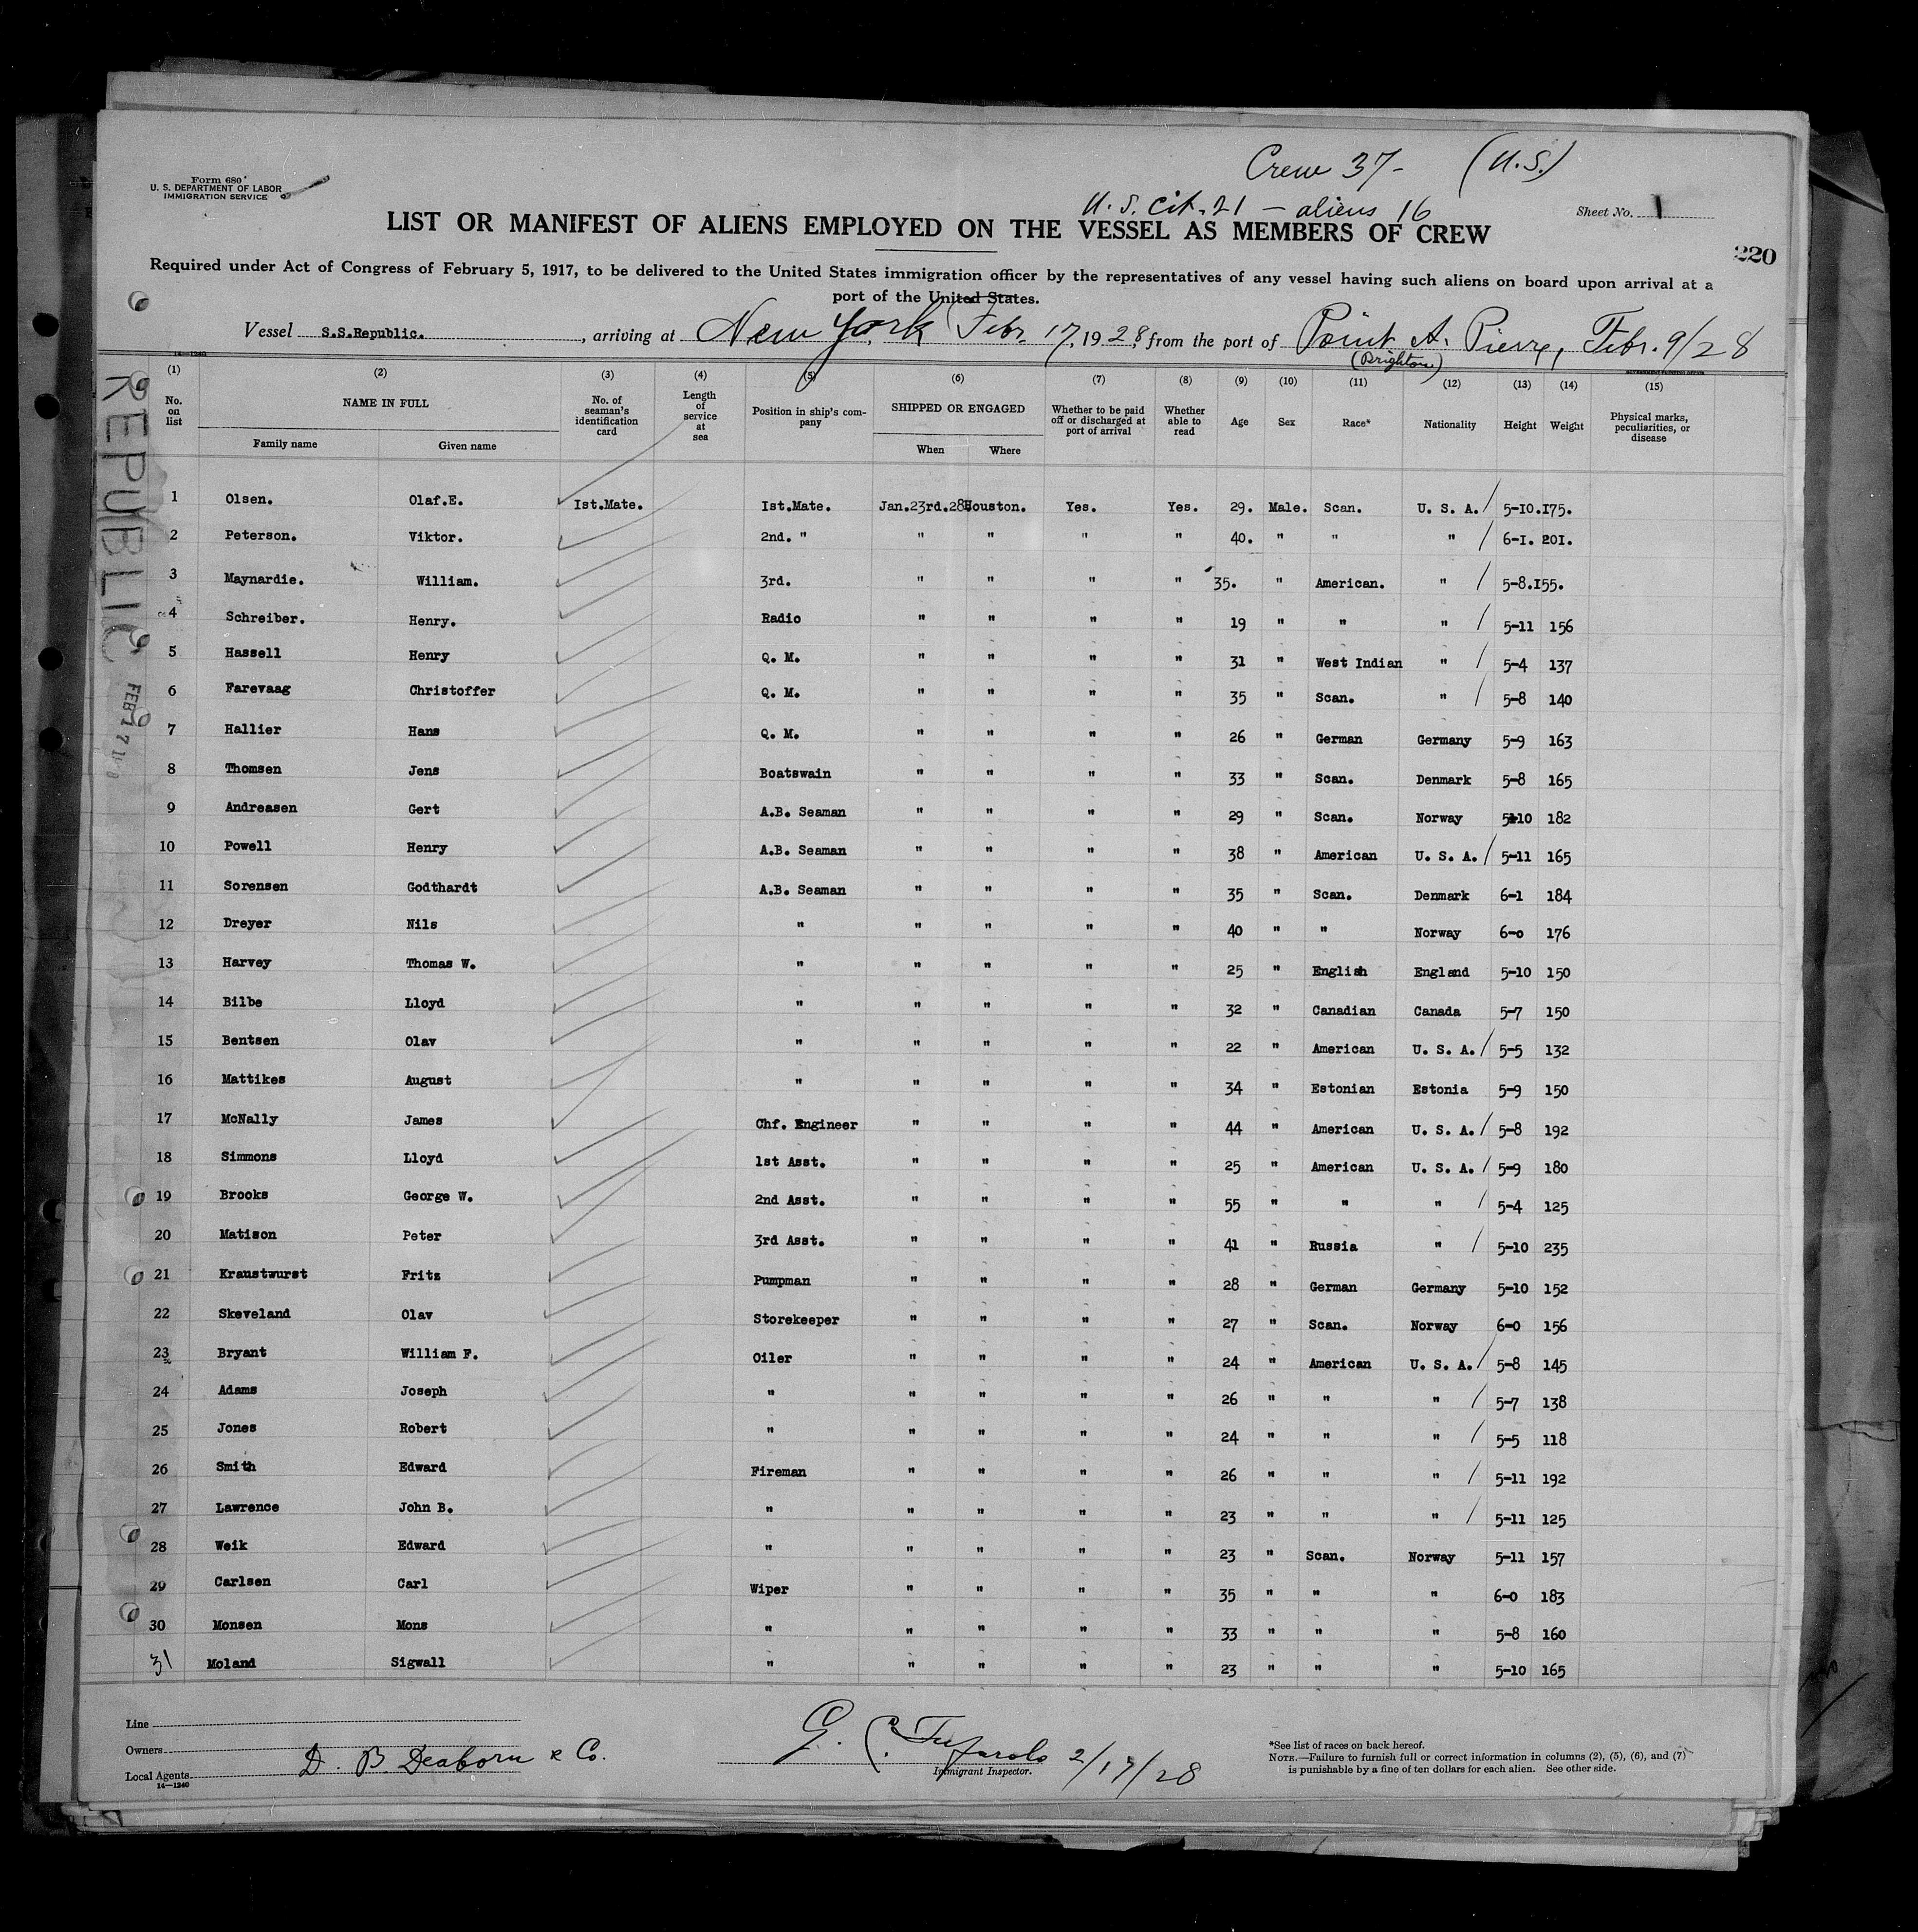 Crew 37- (U.S.)
Form 680
U. S. DEPARTMENT OF LABOR
IMMIGRATION SERVICE
U.S. Cit. 21 - aliens 16
Sheet No. 1
LIST OR MANIFEST OF ALIENS EMPLOYED ON THE VESSEL AS MEMBERS OF CREW
220
Required under Act of Congress of February 5, 1917, to be delivered to the United States immigration officer by the representatives of any vessel having such aliens on board upon arrival at a
port of the United States.
Vessel S.S.Republic. , arriving at New York Febr. 17, 1928, from the port of Point A. Pierre, Febr. 9/28
(Brighton)
14—1240
GOVERNMENT PRINTING OFFICE
REPUBLIC
FEB 17
(1) (2) (3) (4) (5) (6) (7) (8) (9) (10) (11) (12) (13) (14) (15)
No. on list NAME IN FULL No. of seaman's identification card Length of service at sea Position in ship's company SHIPPED OR ENGAGED Whether to be paid off or discharged at port of arrival Whether able to read Age Sex Race* Nationality Height Weight Physical marks, peculiarities, or disease
Family name Given name When Where
1 Olsen. Olaf.E. Ist.Mate. Ist.Mate. Jan.23rd.28 Houston. Yes. Yes. 29. Male. Scan. U. S. A. / 5-10. 175.
2 Peterson. Viktor. 2nd. " " " " " 40. " " " / 6-1. 201.
3 Maynardie. William. 3rd. " " " " 35. " American. " / 5-8. 155.
4 Schreiber. Henry. Radio " " " " 19 " " " / 5-11 156
5 Hassell Henry Q. M. " " " " 31 " West Indian " / 5-4 137
6 Farevaag Christoffer Q. M. " " " " 35 " Scan. " / 5-8 140
7 Hallier Hans Q. M. " " " " 26 " German Germany 5-9 163
8 Thomsen Jens Boatswain " " " " 33 " Scan. Denmark 5-8 165
9 Andreasen Gert A.B. Seaman " " " " 29 " Scan. Norway 5-10 182
10 Powell Henry A.B. Seaman " " " " 38 " American U. S. A. / 5-11 165
11 Sorensen Godthardt A.B. Seaman " " " " 35 " Scan. Denmark 6-1 184
12 Dreyer Nils " " " " " 40 " " Norway 6-0 176
13 Harvey Thomas W. " " " " " 25 " English England 5-10 150
14 Bilbe Lloyd " " " " " 32 " Canadian Canada 5-7 150
15 Bentsen Olav " " " " " 22 " American U. S. A. / 5-5 132
16 Mattikes August " " " " " 34 " Estonian Estonia 5-9 150
17 McNally James Chf. Engineer " " " " 44 " American U. S. A. / 5-8 192
18 Simmons Lloyd 1st Asst. " " " " 25 " American U. S. A. / 5-9 180
19 Brooks George W. 2nd Asst. " " " " 55 " " " / 5-4 125
20 Matison Peter 3rd Asst. " " " " 41 " Russia " / 5-10 235
21 Kraustwurst Fritz Pumpman " " " " 28 " German Germany 5-10 152
22 Skeveland Olav Storekeeper " " " " 27 " Scan. Norway 6-0 156
23 Bryant William F. Oiler " " " " 24 " American U. S. A. / 5-8 145
24 Adams Joseph " " " " " 26 " " " / 5-7 138
25 Jones Robert " " " " " 24 " " " / 5-5 118
26 Smith Edward Fireman " " " " 26 " " " / 5-11 192
27 Lawrence John B. " " " " " 23 " " " / 5-11 125
28 Weik Edward " " " " " 23 " Scan. Norway 5-11 157
29 Carlsen Carl Wiper " " " " 35 " " " 6-0 183
30 Monsen Mons " " " " " 33 " " " 5-8 160
31 Moland Sigwall " " " " " 23 " " " 5-10 165
Line
Owners
Local Agents D. B. Deaborn & Co.
14—1240
G. C. 2/17/28
Immigrant Inspector.
*See list of races on back hereof.
NOTE.—Failure to furnish full or correct information in columns (2), (5), (6), and (7)
is punishable by a fine of ten dollars for each alien. See other side.